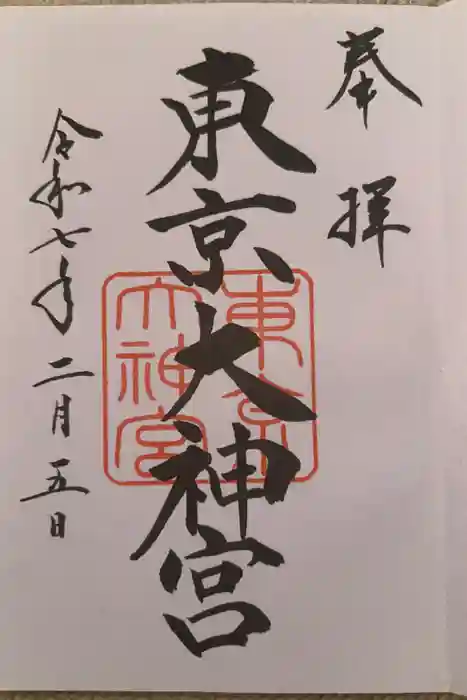 奉拝
東京大神宮
東京
大神宮
令和七年二月五日